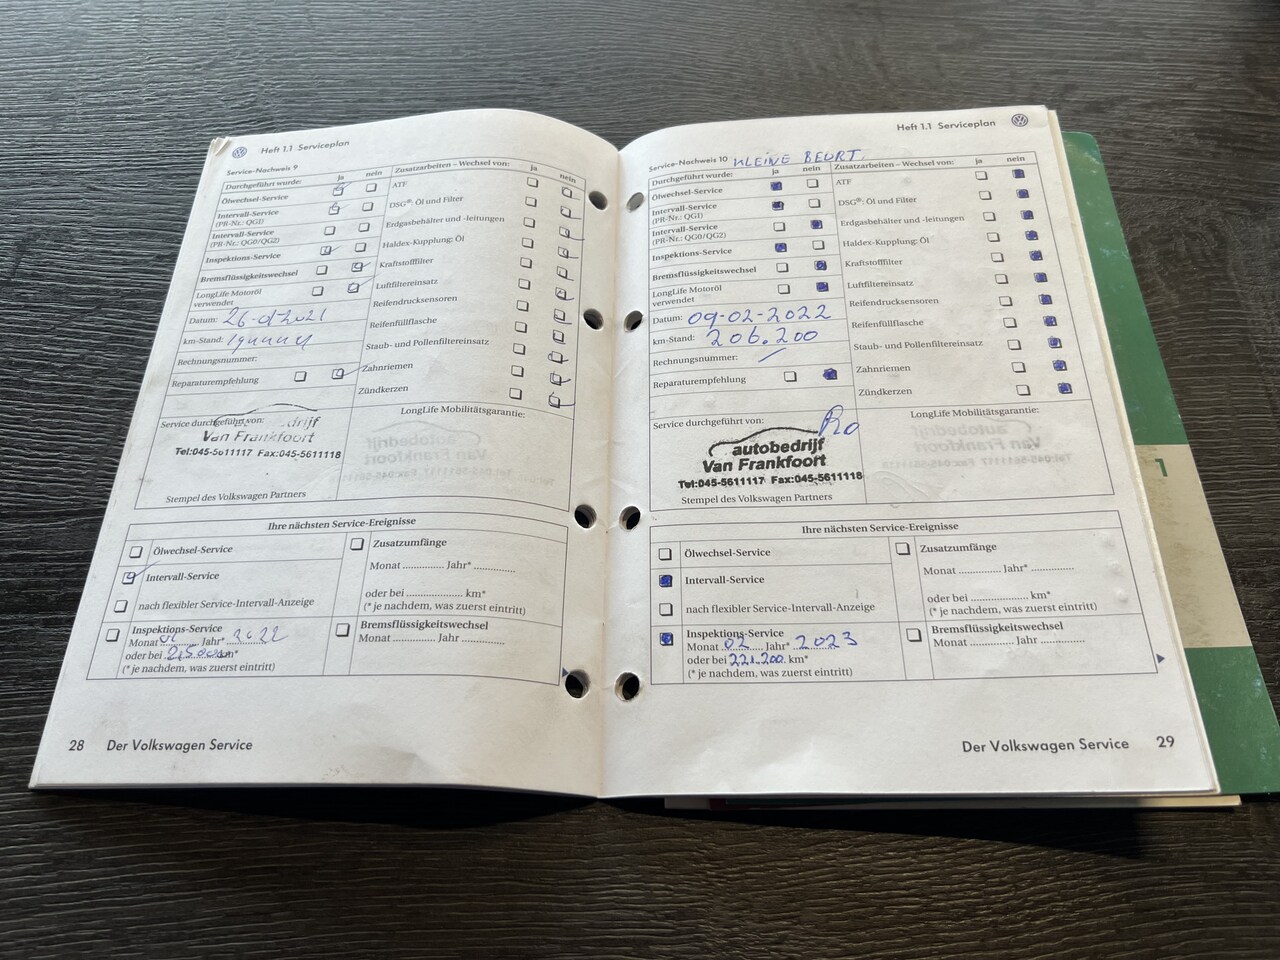 Heft 1.1 Serviceplan
Service-Nachweis 9
Durchgeführt wurde: ja nein
Ölwechsel-Service
Intervall-Service
(PR-Nr.: QG1)
Intervall-Service
(PR-Nr.: QG0/QG2)
Inspektions-Service
Bremsflüssigkeitswechsel
LongLife Motoröl
verwendet
Datum:
km-Stand:
Rechnungsnummer:
Reparaturempfehlung
Zusatzarbeiten – Wechsel von: ja nein
ATF
DSG®: Öl und Filter
Erdgasbehälter und -leitungen
Haldex-Kupplung: Öl
Kraftstofffilter
Luftfiltereinsatz
Reifendrucksensoren
Reifenfüllflasche
Staub- und Pollenfiltereinsatz
Zahnriemen
Zündkerzen
Service durchgeführt von:
Van Frankfoort
Tel:045-5611117 Fax:045-5611118
Stempel des Volkswagen Partners
LongLife Mobilitätsgarantie:
Ihre nächsten Service-Ereignisse
Ölwechsel-Service
Intervall-Service
nach flexibler Service-Intervall-Anzeige
Inspektions-Service
Monat Jahr* 2022
oder bei km*
(* je nachdem, was zuerst eintritt)
Zusatzumfänge
Monat .............. Jahr* ..............
oder bei .................... km*
(* je nachdem, was zuerst eintritt)
Bremsflüssigkeitswechsel
Monat .............. Jahr ..............
28 Der Volkswagen Service
Heft 1.1 Serviceplan
Service-Nachweis 10 KLEINE BEURT.
Durchgeführt wurde: ja nein
Ölwechsel-Service
Intervall-Service
(PR-Nr.: QG1)
Intervall-Service
(PR-Nr.: QG0/QG2)
Inspektions-Service
Bremsflüssigkeitswechsel
LongLife Motoröl
verwendet
Datum: 09-02-2022
km-Stand: 206.200
Rechnungsnummer: /
Reparaturempfehlung
Zusatzarbeiten – Wechsel von: ja nein
ATF
DSG®: Öl und Filter
Erdgasbehälter und -leitungen
Haldex-Kupplung: Öl
Kraftstofffilter
Luftfiltereinsatz
Reifendrucksensoren
Reifenfüllflasche
Staub- und Pollenfiltereinsatz
Zahnriemen
Zündkerzen
Service durchgeführt von:
autobedrijf
Van Frankfoort
Tel:045-5611117 Fax:045-5611118
Stempel des Volkswagen Partners
LongLife Mobilitätsgarantie:
Ihre nächsten Service-Ereignisse
Ölwechsel-Service
Intervall-Service
nach flexibler Service-Intervall-Anzeige
Inspektions-Service
Monat 02 Jahr* 2023
oder bei 221.200 km*
(* je nachdem, was zuerst eintritt)
Zusatzumfänge
Monat .............. Jahr* ..............
oder bei .................... km*
(* je nachdem, was zuerst eintritt)
Bremsflüssigkeitswechsel
Monat .............. Jahr ..............
Der Volkswagen Service 29
1